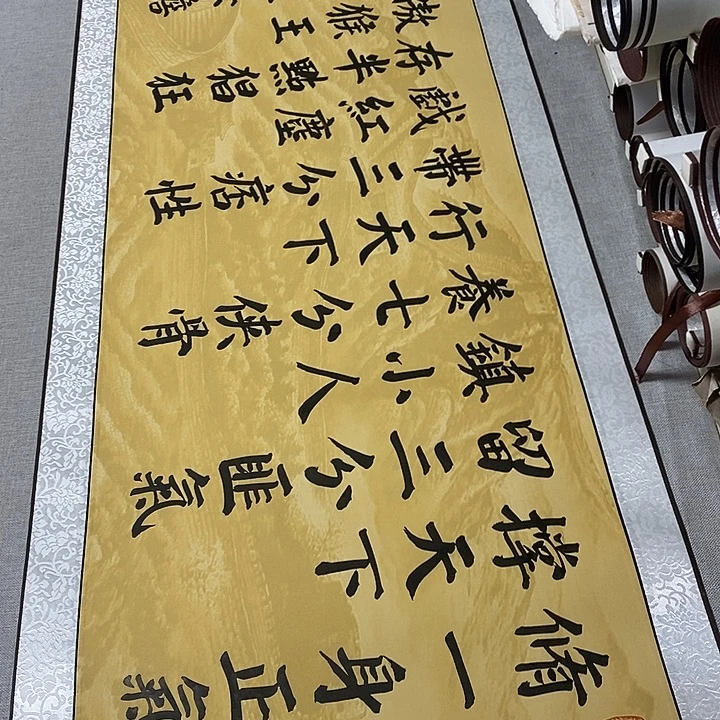 脩一身正氣
撑天下
留三分匪氣
鎮小人
養七分俠骨
行天下
帶三分痞性
戲紅塵
存半點猖狂
傲猴王